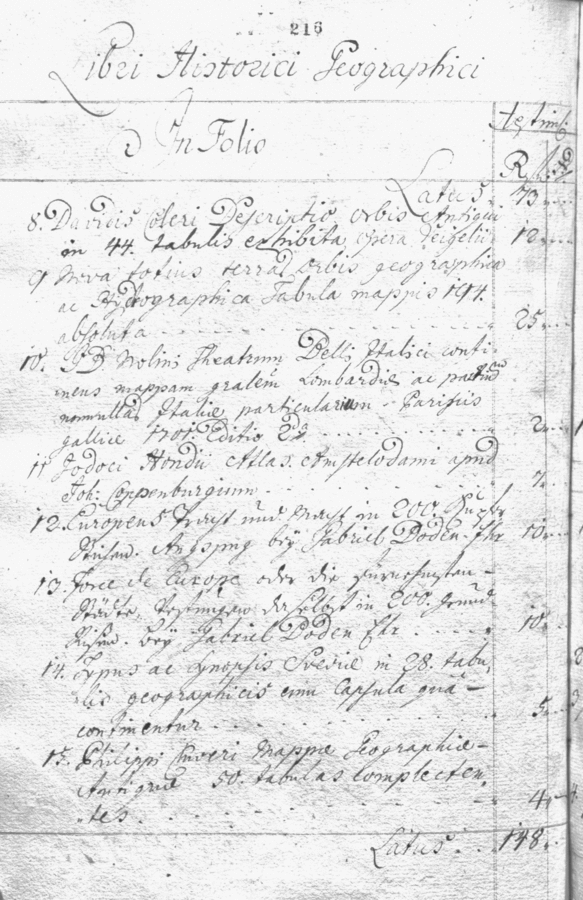 216
Libri Historici Geographici
In Folio
Æstim.
R
Latus. 73
8. Davidis Celeri Descriptio orbis Antiqui
in 44. tabulis exhibita, opera Weigelii 12
9 Nova totius terraꝝ orbis geographica
ac Hydrographica Tabula mappis 194.
absoluta 25
10. Molini Theatrum Belli Italici conti-
nens mappam gralem Lombardiæ ac
nonnullas Italiæ particularium - Parisiis
gallice 1701. Editio 2da 2
11 Jodoci Hondii Atlas. Amstelodami apud
Joh: Coppenburgium 7
12. Europens Pracht und Macht in 200. Kupfer
Stichen. Augspurg bey Gabriel Boden-Ehr 10
13. Force de Europe oder die fürnehmsten -
Städte, Vestungen daselbst in 200. Grund
Rissen. Bey Gabriel Boden Ehr 10
14. Typus ac Synopsis Sveciæ in 28. tabu,
lis geographicis cum Capsula quâ -
continentur 5
15. Philippi Cluveri Mappæ Geographiæ -
Antiquæ 50. tabulas complecten,
tes 4
Latus 148